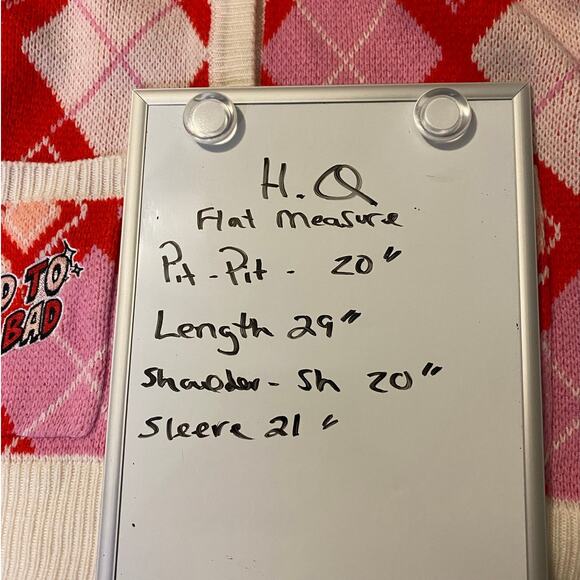 H.Q
Flat Measure
Pit - Pit - 20"
Length 29"
Shoulder - Sh 20"
Sleeve 21"
TO
BAD